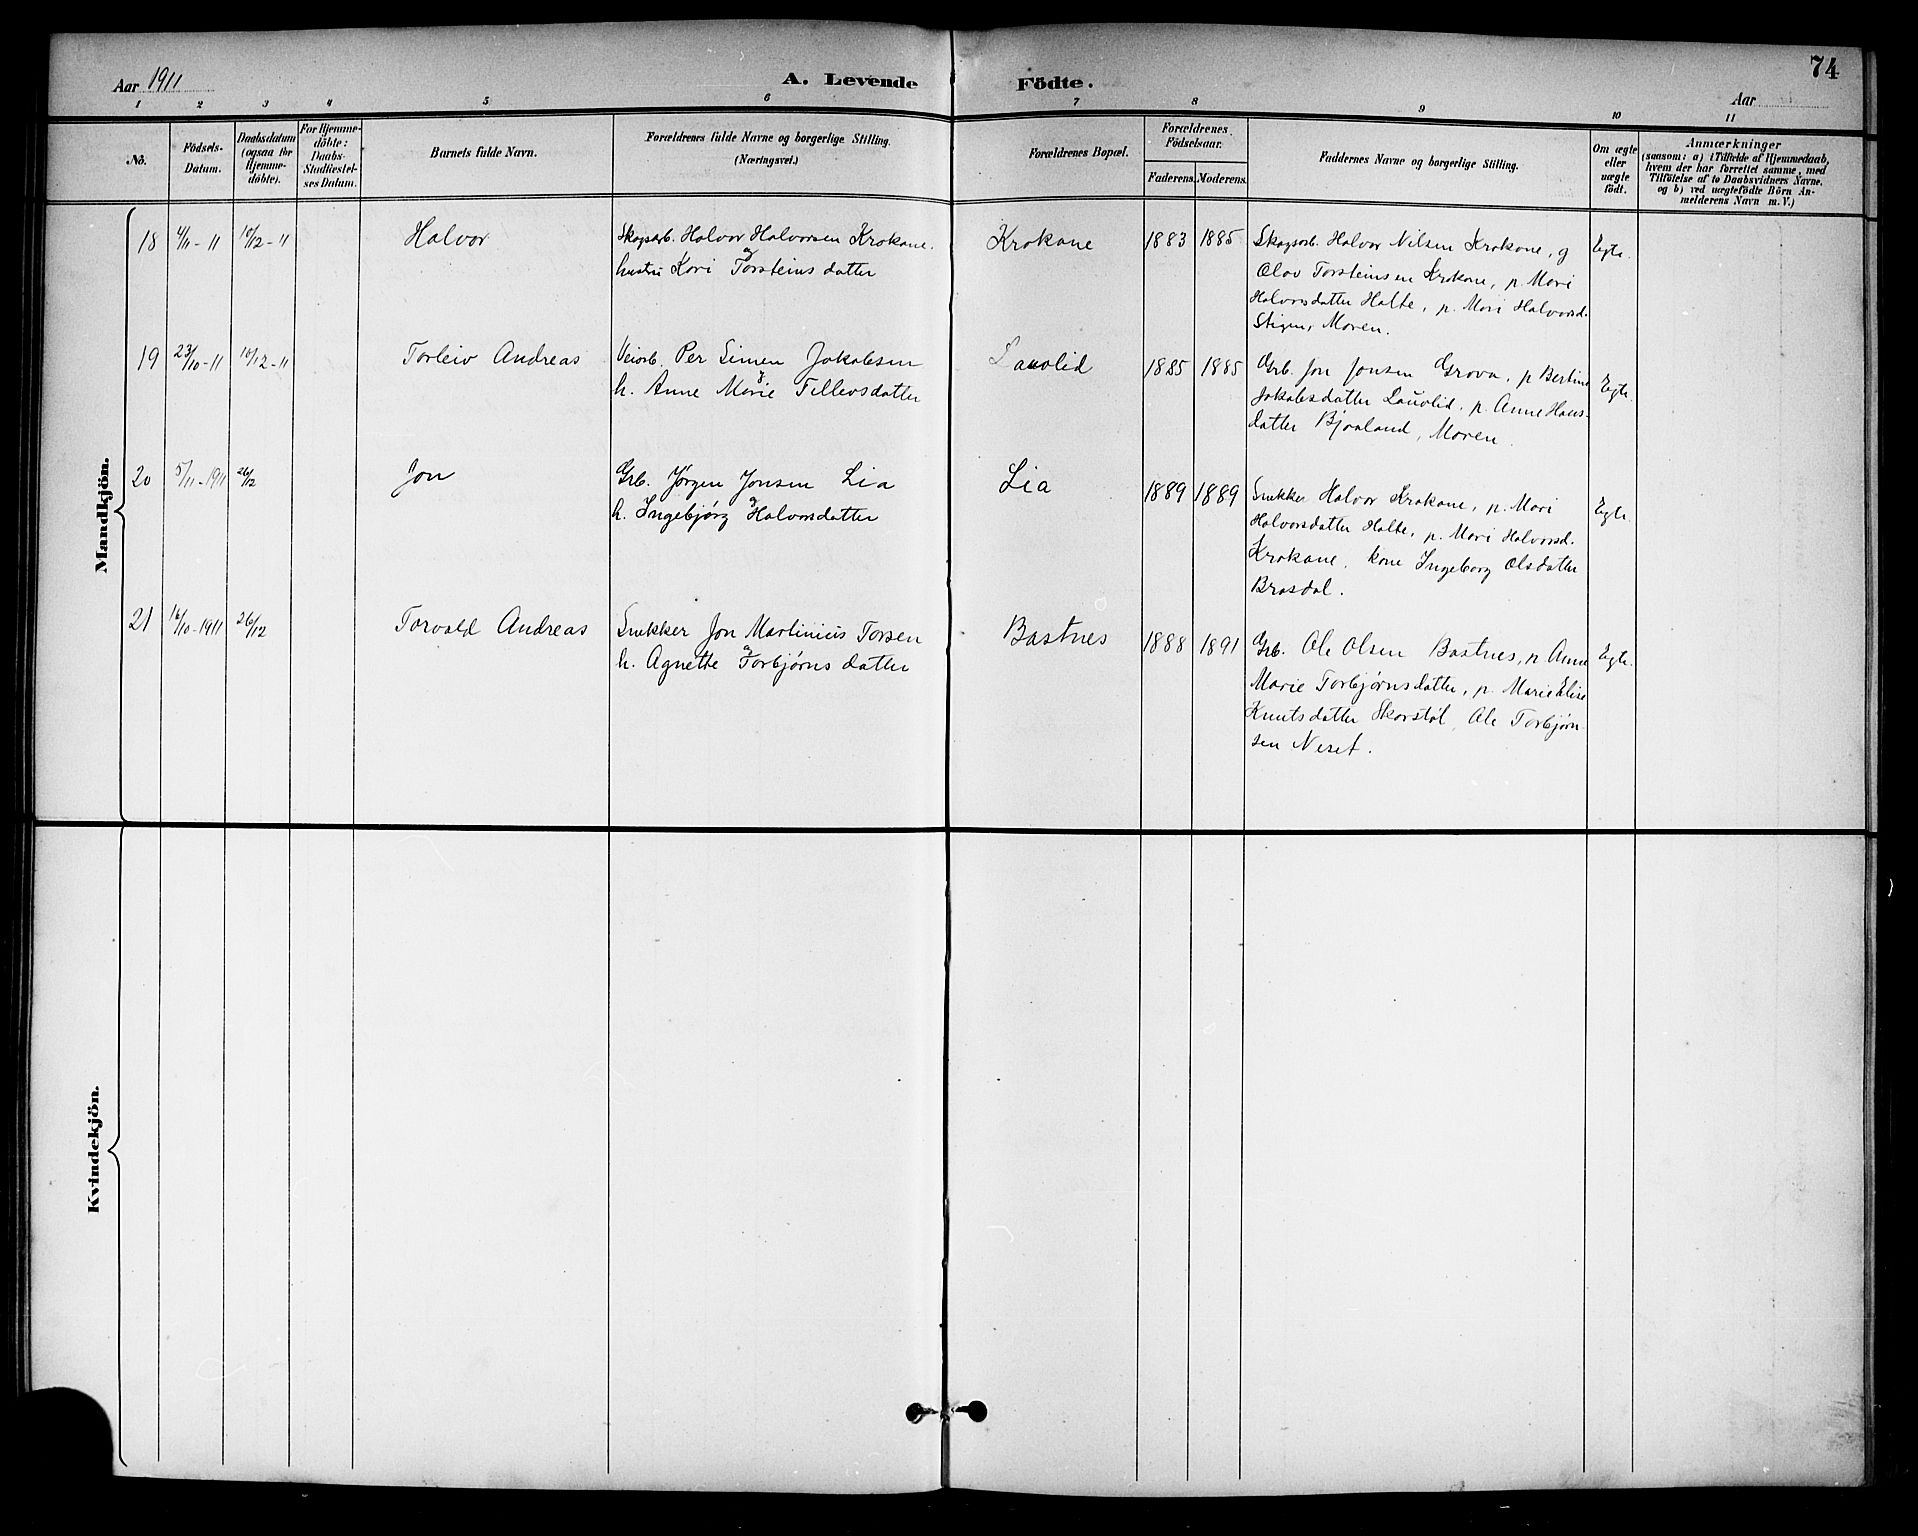 74
Aar 1911
A. Levende Födte.
Aar
1 2 3 4 5 6 7 8 9 10 11
No.
Födsels-
Datum.
Daabsdatum
(ogsaa for
Hjemme-
döbte).
For Hjemme-
döbte:
Daabs-
Stadfæstel-
ses Datum.
Barnets fulde Navn.
Forældrenes fulde Navne og borgerlige Stilling.
(Næringsvei.)
Forældrenes Bopæl.
Forældrenes
Födselsaar.
Faderens. Moderens.
Faddernes Navne og borgerlige Stilling.
Om ægte
eller
uægte
födt.
Anmærkninger
(saasom: a) i Tilfælde af Hjemmedaab,
hvem der har forrettet samme, med
Tilföielse af to Daabsvidners Navne,
og b) ved uægtefödte Börn An-
melderens Navn m. V.)
Mandkjön.
18 4/11-11 10/12-11 Halvor
Skogsarb. Halvor Halvorsen Krokane.
og
hustru Kari Torsteinsdatter
Krokane 1883 1885
Skogsarb. Halvor Nilsen Krokane, g
Olav Torsteinsen Krokane, p. Mari
Halvorsdatter Halte, p. Mari Halvorsd.
Stigen, Moren.
Egte.
19 23/10-11 10/12-11 Torleiv Andreas
Veiarb. Per Simen Jakobsen
og
h. Anne Marie Tellevsdatter
Lauvlid 1885 1885
Grb. Jon Jonsen Grova, p Bertine
Jakobsdatter Lauvlid, p. Anne Hans-
datter Bjaaland, Moren.
Egte.
20 5/11-1911 26/12 Jon
Grb. Jørgen Jonsen Lia
og
h. Ingebjørg Halvorsdatter
Lia 1889 1889
Snekker Halvor Krokane, p. Mari
Halvorsdatter Halte, p. Mari Halvorsd.
Krokane, kone Ingeborg Olsdatter
Brasdal.
Egte.
21 16/10-1911 26/12 Torvald Andreas
Snekker Jon Martinius Torsen
og
h. Agnette Torbjørnsdatter
Bastnes 1888 1891
Grb. Ole Olsen Bastnes, p Anne
Marie Torbjørnsdatter, p. Marie Elise
Knutsdatter Skorstøl, Ole Torbjørn-
sen Neset.
Egte.
Kvindekjön.